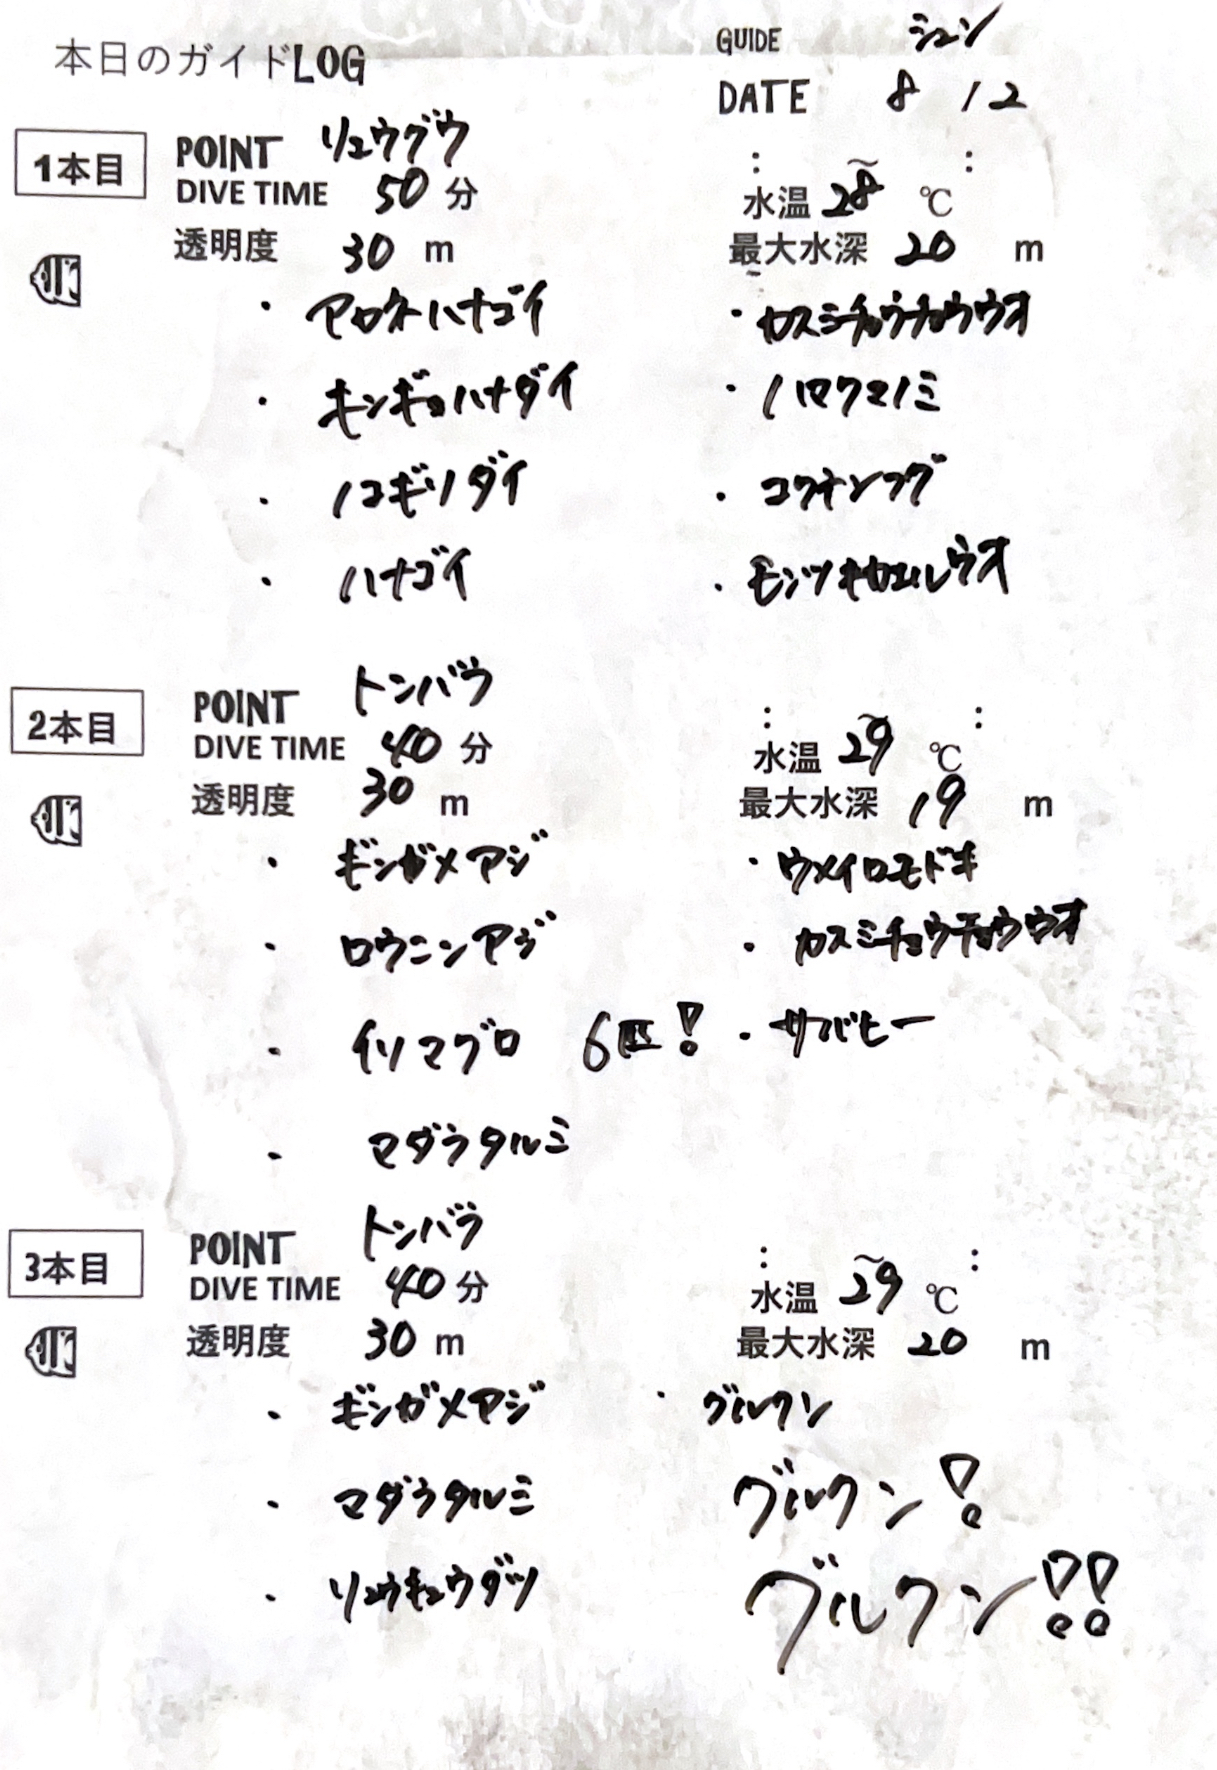 本日のガイドLOG
GUIDE シュン
DATE 8 12
1本目
POINT リュウグウ
DIVE TIME 50 分
: ~ :
水温 28 ℃
透明度 30 m
最大水深 20 m
・ アカネハナゴイ
・ カスミチョウチョウウオ
・ キンギョハナダイ
・ ハマクマノミ
・ ノコギリダイ
・ コクテンフグ
・ ハナゴイ
・ モンツキカエルウオ
2本目
POINT トンバラ
DIVE TIME 40 分
: ~ :
水温 29 ℃
透明度 30 m
最大水深 19 m
・ ギンガメアジ
・ ウメイロモドキ
・ ロウニンアジ
・ カスミチョウチョウウオ
・ イソマグロ 6匹!
・ サバヒー
・ マダラタルミ
3本目
POINT トンバラ
DIVE TIME 40 分
: ~ :
水温 29 ℃
透明度 30 m
最大水深 20 m
・ ギンガメアジ
・ グルクン
・ マダラタルミ
グルクン!
・ リュウキュウダツ
グルクン!!